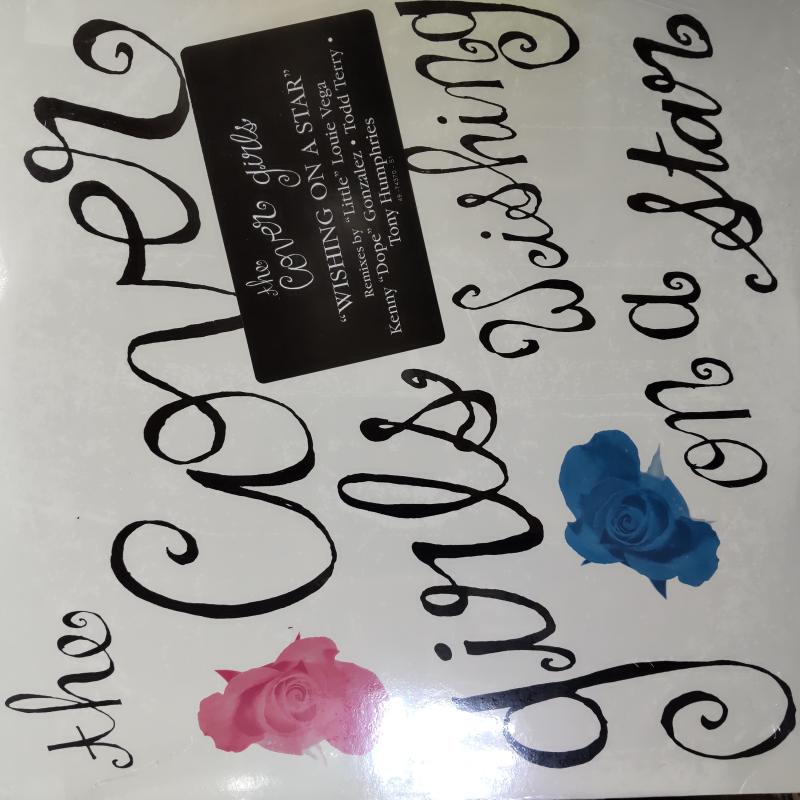 the
Cover
girls
Wishing
on a star
the
Cover girls
"WISHING ON A STAR"
Remixes by "Little" Louie Vega
Kenny "Dope" Gonzalez • Todd Terry •
Tony Humphries